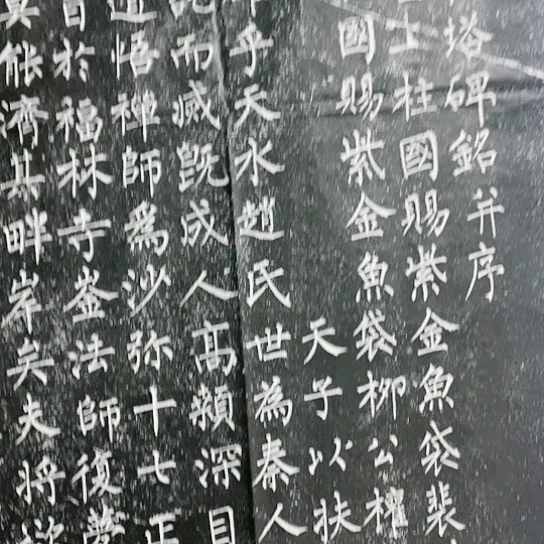 塔碑銘并序
上柱國賜紫金魚袋裴
國賜紫金魚袋柳公權
天子以扶
乎天水趙氏世為秦人
而滅既成人高顙深目
道悟禪師為沙弥十七正
旨於福林寺崟法師復夢
能濟其畔岸矣夫將